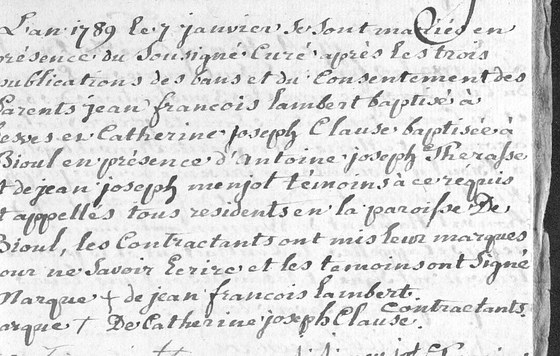 L'an 1789 le 7 janvier se sont mariés en
présence du Sousigné Curé après les trois
publications des bans et du Consentement des
Parents jean francois lambert baptisé à
et Catherine joseph Clause baptisée à
Bioul en présence d'Antoine joseph Therasse
et de jean joseph menjot témoins à ce requis
et appellés tous residents en la paroisse De
Bioul, les Contractants ont mis leur marques
pour ne Savoir Ecrire et les témoins ont Signé
Marque + de jean francois lambert.
marque + De Catherine joseph Clause. Contractants.